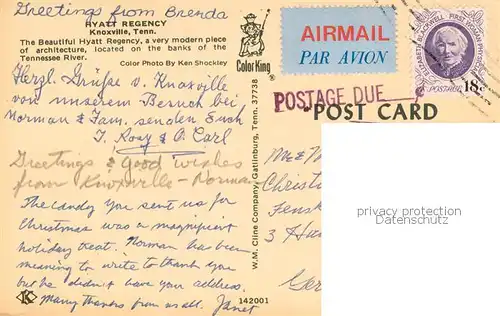 Greetings from Brenda
HYATT REGENCY
Knoxville, Tenn.
The Beautiful Hyatt Regency, a very modern piece
of architecture, located on the banks of the
Tennessee River.
Color Photo By Ken Shockley
Color King
Herzl. Grüße v. Knoxville
von unserem Besuch bei
Norman & Fam. senden Euch
T. Rosy & O. Carl
Greetings & Good Wishes
from Knoxville - Norman
The candy you sent us for
Christmas was a magnificent
holiday treat. Norman has been
meaning to write to thank you
but he didn't have your address.
Many thanks from us all. Janet
K
142001
W.M. Cline Company, Gatlinburg, Tenn. 37738
AIRMAIL
PAR AVION
ELIZABETH BLACKWELL FIRST WOMAN PHYSICIAN
U.S. POSTAGE 18c
POSTAGE DUE
POST CARD
Mr & 
Christ
Fensk
3 
Ger
privacy protection